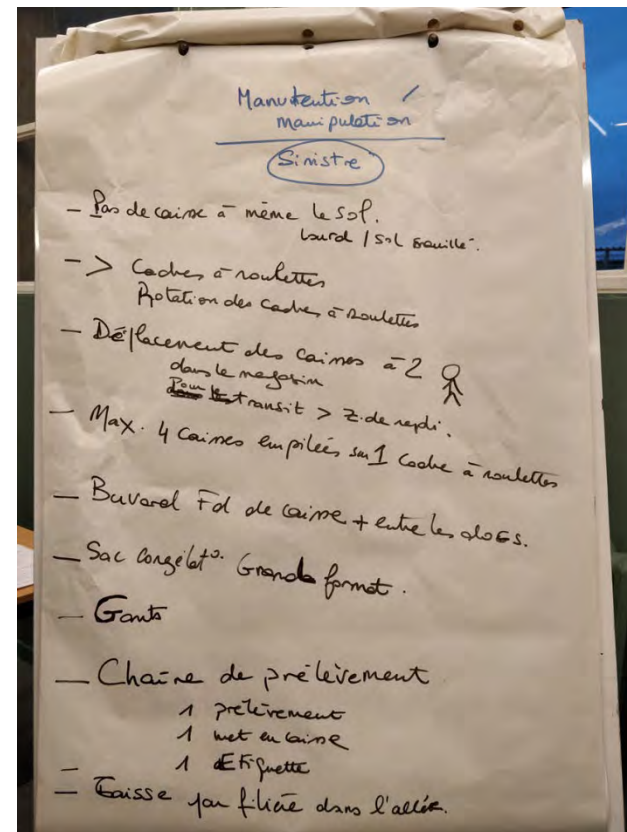 Manutention /
manipulation
Sinistre
- Pas de caisse à même le sol.
lourd / sol mouillé.
-> Cadres à roulettes
Rotation des cadres à roulettes
- Déplacement des caisses à 2
dans le magasin
Pour transit > Z. de repli.
- Max. 4 caisses empilées sur 1 cadre à roulettes
- Buvard Fd de caisse + entre les docs.
- Sac congélat°. Grands format.
- Gants
- Chaîne de prélèvement
1 prélèvement
1 met en caisse
1 Etiquette
- Caisse par filière dans l'allée.